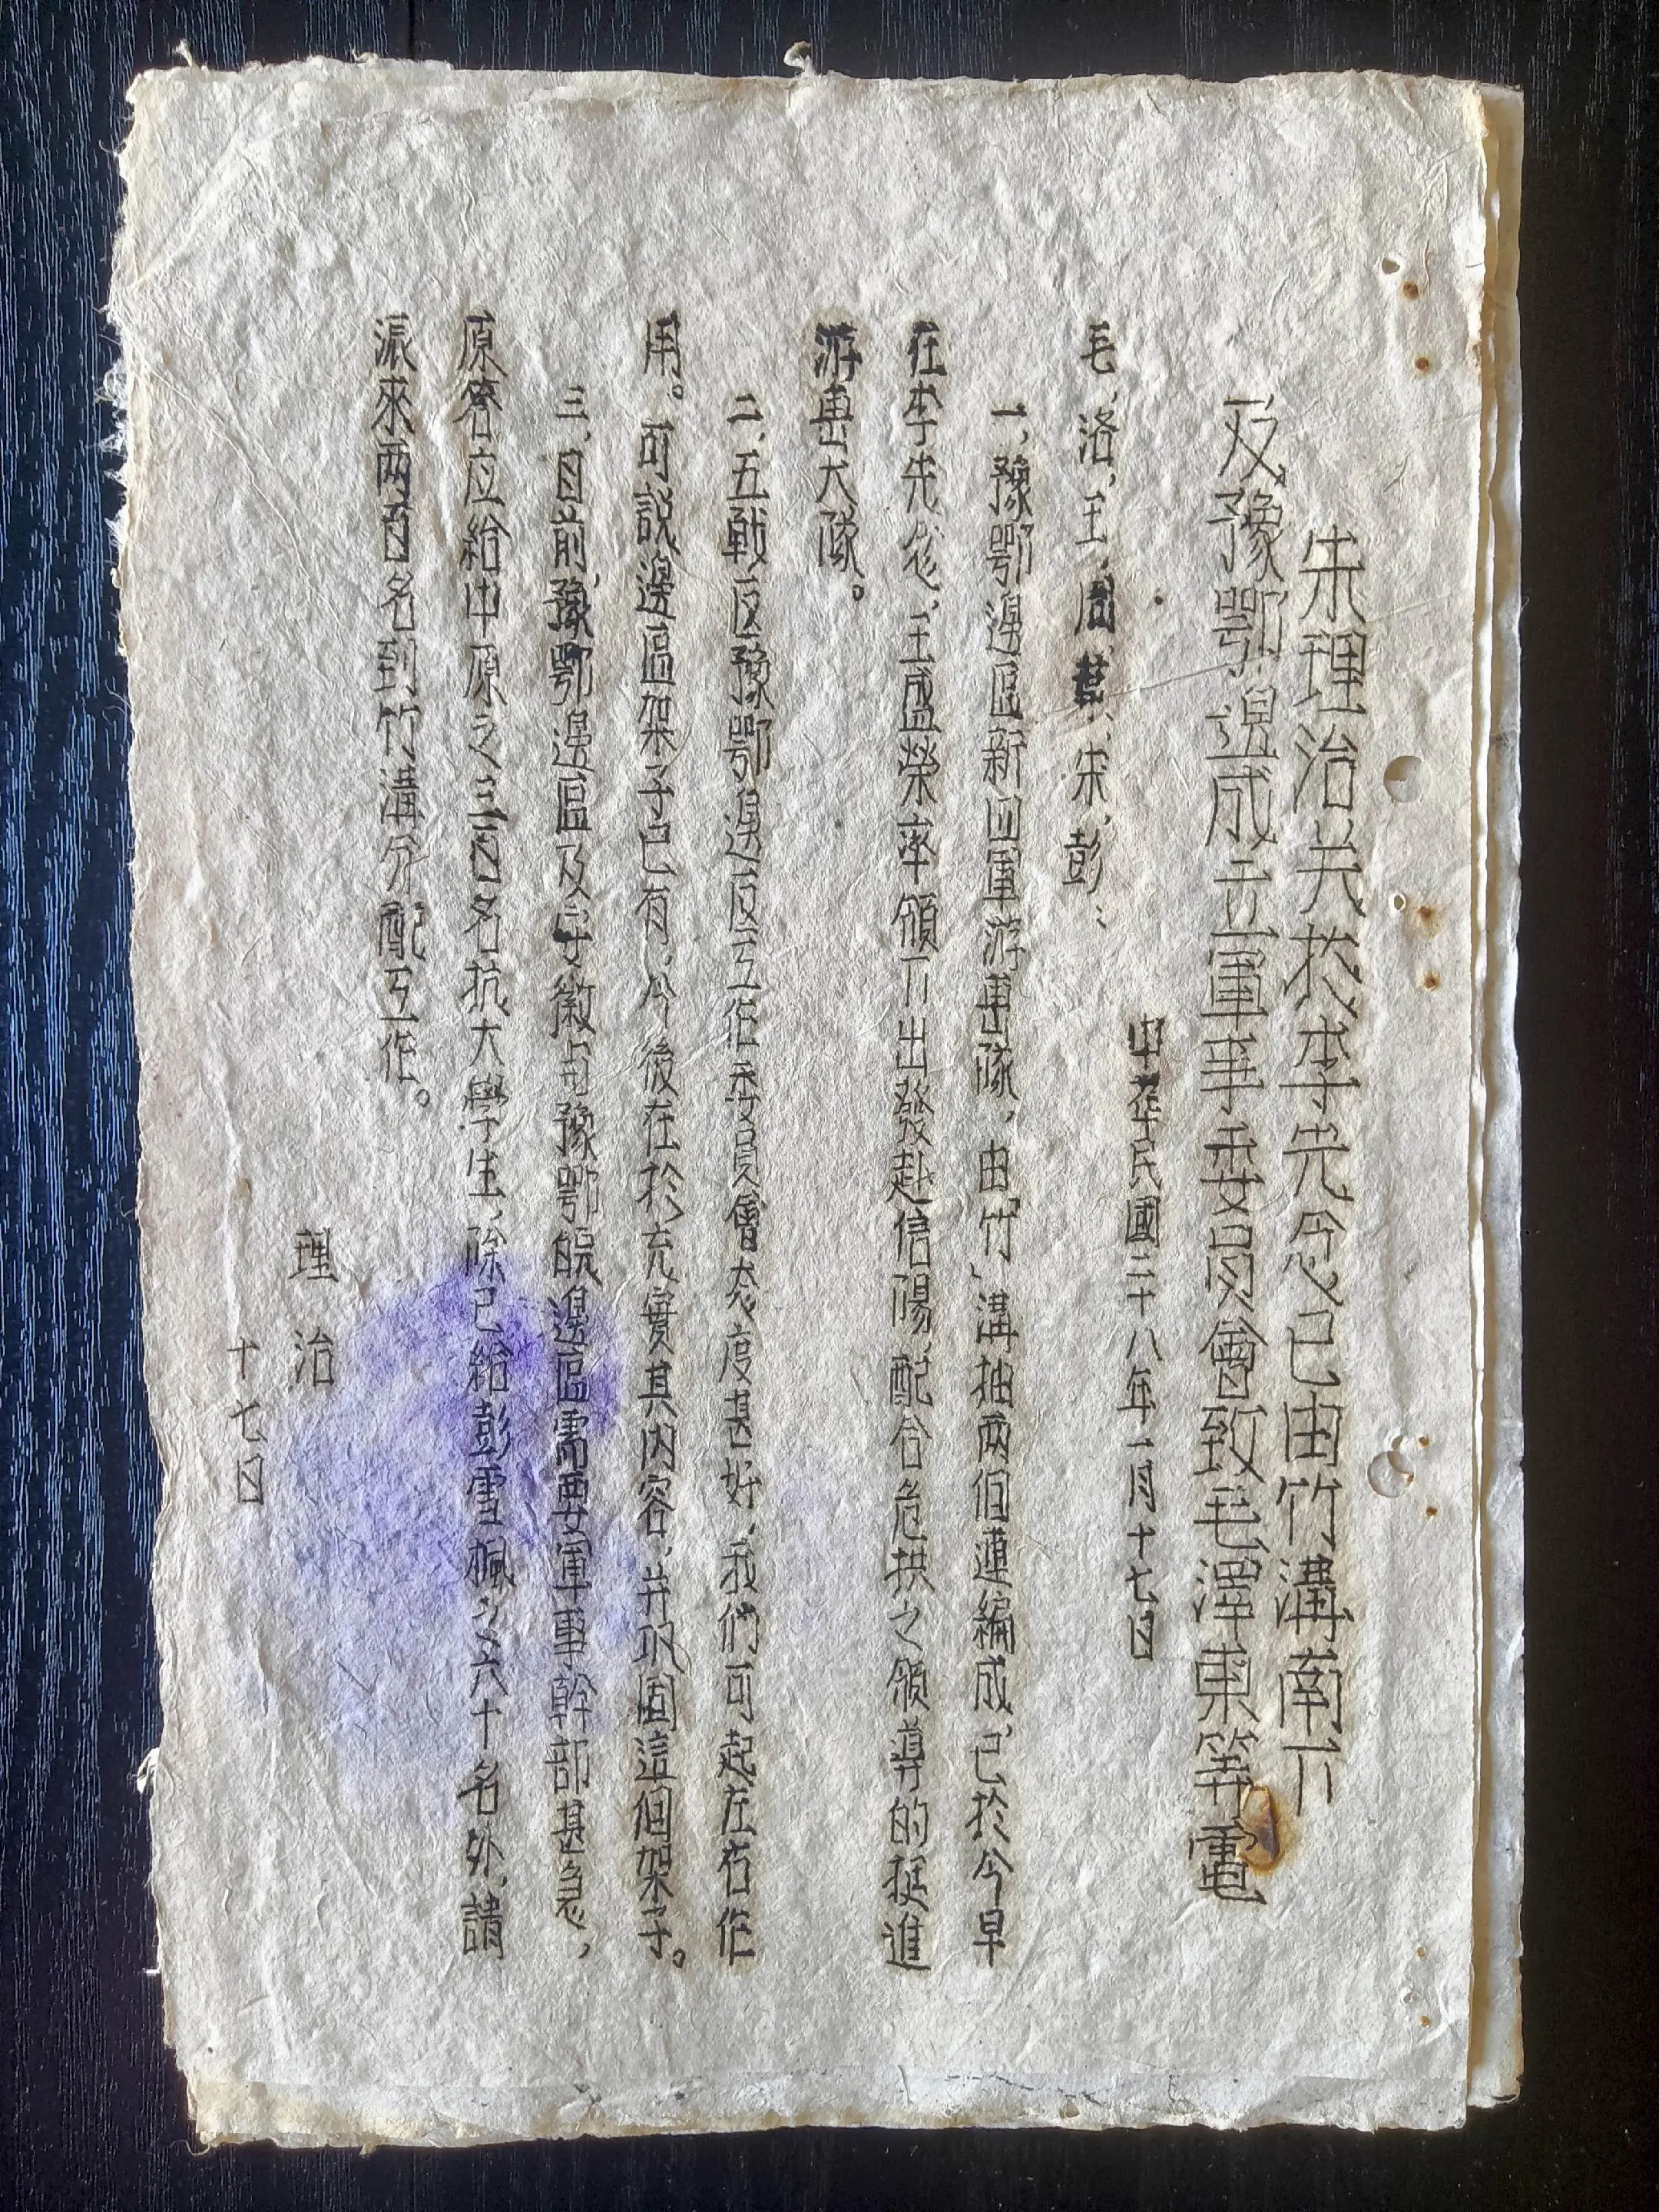 朱理治关於李先念已由竹溝南下
及豫鄂邊成立軍事委員會致毛澤東等電
中華民國二十八年一月十七日
毛、洛、王、周、葉、朱、彭：
一、豫鄂邊區新四軍游击隊，由「竹」溝抽兩個連編成，已於今早
在李先念、王盛榮率領下出發赴信陽，配合危拱之領導的挺進
游击大隊。
二、五戰区豫鄂邊区工作委員會态度甚好，我們可起左右作
用。可説邊區架子已有，今後在於充實其内容，并巩固這個架子。
三、目前，豫鄂邊區及安徽與豫鄂皖邊區需要軍事幹部甚急，
原答应給中原之三百名抗大學生，除已給彭雪楓之六十名外，請
派來两百名到竹溝分配工作。
理治
十七日